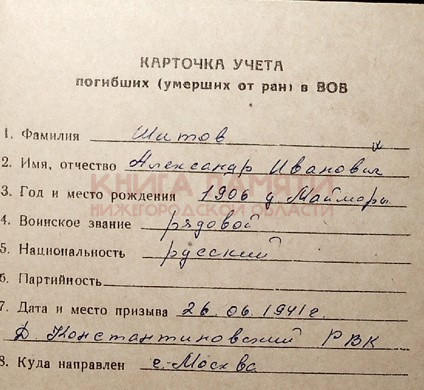 КАРТОЧКА УЧЕТА
погибших (умерших от ран) в ВОВ
1. Фамилия Шитов
2. Имя, отчество Александр Иванович
3. Год и место рождения 1906 д Майморы
КНИГА ПАМЯТИ
НИЖЕГОРОДСКОЙ ОБЛАСТИ
4. Воинское звание рядовой
5. Национальность русский
6. Партийность
7. Дата и место призыва 26.06.1941г.
Д. Константиновский РВК
8. Куда направлен г. Москва